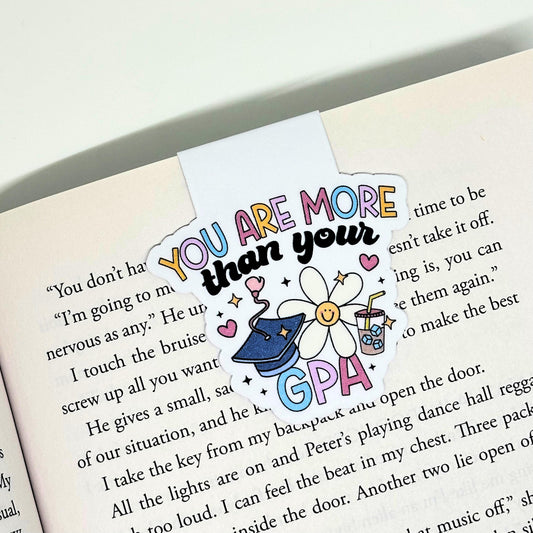 YOU ARE MORE
than your
GPA
time to be
"You don't ha
esn't take it off.
"I'm going to m
ing is, you can
nervous as any." He un
e them again."
I touch the bruise
to make the best
screw up all you want
He gives a small, sa
of our situation, and he k
I take the key from my backpack and open the door.
All the lights are on and Peter's playing dance hall regga
too loud. I can feel the beat in my chest. Three pack
inside the door. Another two lie open of
at music off," sh
My
sual,